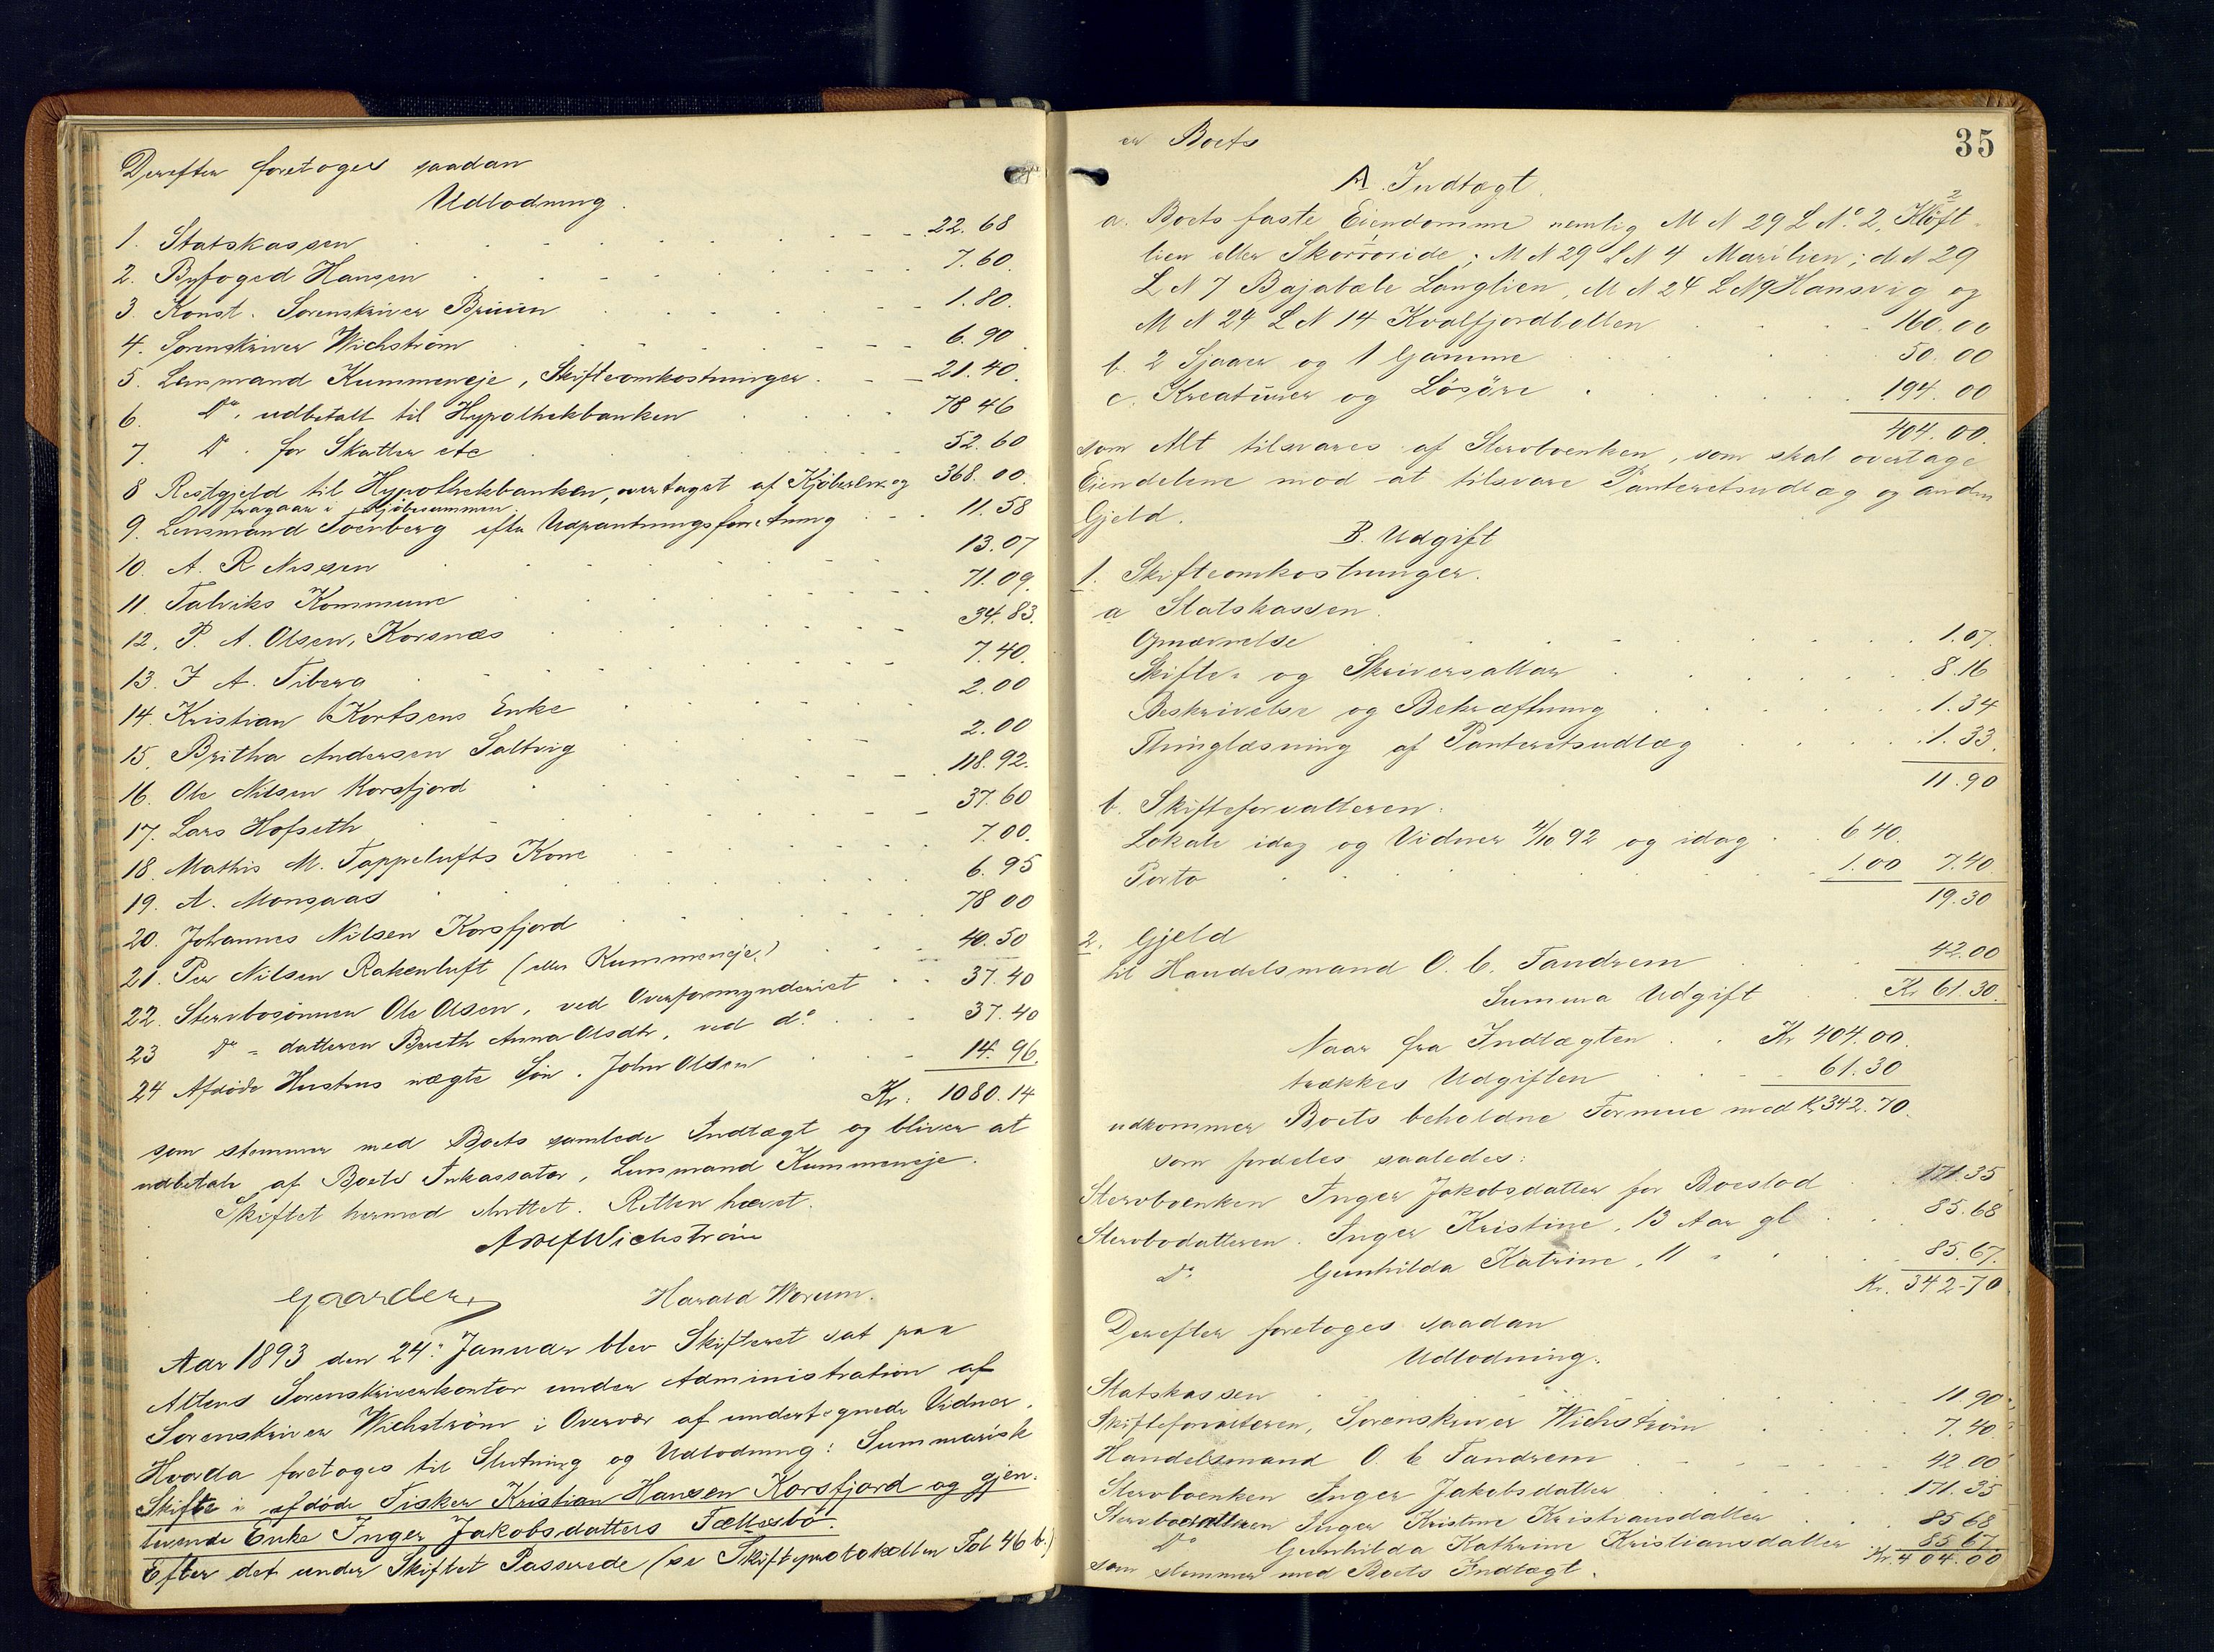 Derefter foretoges saadan
Udlodning.
1. Statskassen 22.68
2. Byfoged Hansen 7.60.
3. Konst. Sorenskriver Bruun 1.80.
4. Sorenskriver Wichstrøm 6.90
5. Lensmand Kummeneje, Skifteomkostninger 21.40.
6. Do. udbetalt til Hypothekbanken 78 46
7. Do. for Skatter etc 52.60
8 Restgjeld til Hypothekbanken, overtaget af Kjøberen og 368.00.
fragaar i Kjøbesummen
9. Lensmand efter Udpantningsforretning 11.58
10. A. R Nissen 13.07
11. Talviks Kommune 71.09.
12. P. A. Olsen, Korsnæs 34.83.
13. J A. Tiberg 7.40.
14. Kristian Kortsens Enke 2.00
15. Britha Andersen Saltvig 2.00
16. Ole Nilsen Korsfjord 118.92.
17. Lars Hofseth 37.60
18. Mathis M. Tappelufts Kone 7.00.
19. A. Monsaas 6.95
20. Johannes Nilsen Korsfjord 78 00
21. Per Nilsen Rakenluft (eller Kummeneje) 40.50
22. Stervbosønnen Ole Olsen, ved Overformynderiet 37.40
23 Do - datteren Bereth Anna Olsdtr, ved do. 37.40
24 Afdøde Hustrus uægte Søn, John Olsen 14.96.
Kr. 1080.14
som stemmer med Boets samlede Indtægt og bliver at
udbetale af Boets Inkassator, Lensmand Kummeneje.
Skiftet hermed sluttet. Retten hævet.
Wichstrøm
Gaarder Harald Worum.
Aar 1893 den 24. Januar blev Skifteret sat paa
Altens Sorenskriverkontor under Administration af
Sorenskriver Wichstrøm i Overvær af undertegnede Vidner.
Hvorda foretoges til Slutning og Udlodning: Summarisk
Skifte i afdøde Fisker Kristian Hansen Korsfjord og gjen-
levende Enke Inger Jakobsdatters Fællesbo.
Efter det under Skiftet Passerede (se Skifteprotokollen Fol 46 b.)
35
er Boets
A. Indtægt.
a. Boets faste Eiendomme nemlig M N 29 L No. 2, Kløft-
lien eller Skorroride; M N 29 L N 4 Marilien; do N 29
L N 7 Bajabæle Langlien, M N 24 L N 9 Hansvig og
M N 24 L N 14 Kvalfjordbotten 160.00
b. 2 Sjaaer og 1 Gamme 50.00
c. Kreaturer og Løsøre 194.00
404.00.
som Alt tilsvares af Stervboenken, som skal overtage
Eiendelene mod at tilsvare Panteretsudlæg og anden
Gjeld.
B. Udgift
1. Skifteomkostninger.
a Statskassen.
Opnævnelse 1.07.
Skifte- og Skriversallar 8.16
Beskrivelse og Bekræftning 1.34
Thinglæsning af Panteretsudlæg 1.33.
11.90
b. Skifteforvalteren.
Lokale idag og Vidner 4/10 92 og idag 6 40.
Porto 1.00 7.40
19.30
2. Gjeld
til Handelsmand O. C. Tandrem 42.00
Summa Udgift Kr 61.30.
Naar fra Indtægten Kr 404.00.
trækkes Udgiften 61.30
udkommer Boets beholdne Formue med Kr 342.70.
som fordeles saaledes:
Stervboenken Inger Jakobsdatter for Boeslod 171.35
Stervbodatteren. Inger Kristine, 13 Aar gl 85.68
Do. Gunhilda Katrine, 11 " " 85.67.
Kr. 342-70
Derefter foretoges saadan
Udlodning.
Statskassen 11.90
Skifteforvalteren, Sorenskriver Wichstrøm 7.40
Handelsmand O. C Tandrem 42.00
Stervboenken Inger Jakobsdatter 171.35
Stervbodatteren Inger Kristine Kristiansdatter 85 68
Do Gunhilda Kathrine Kristiansdatter 85 67
Kr. 404.00
som stemmer med Boets Indtægt.